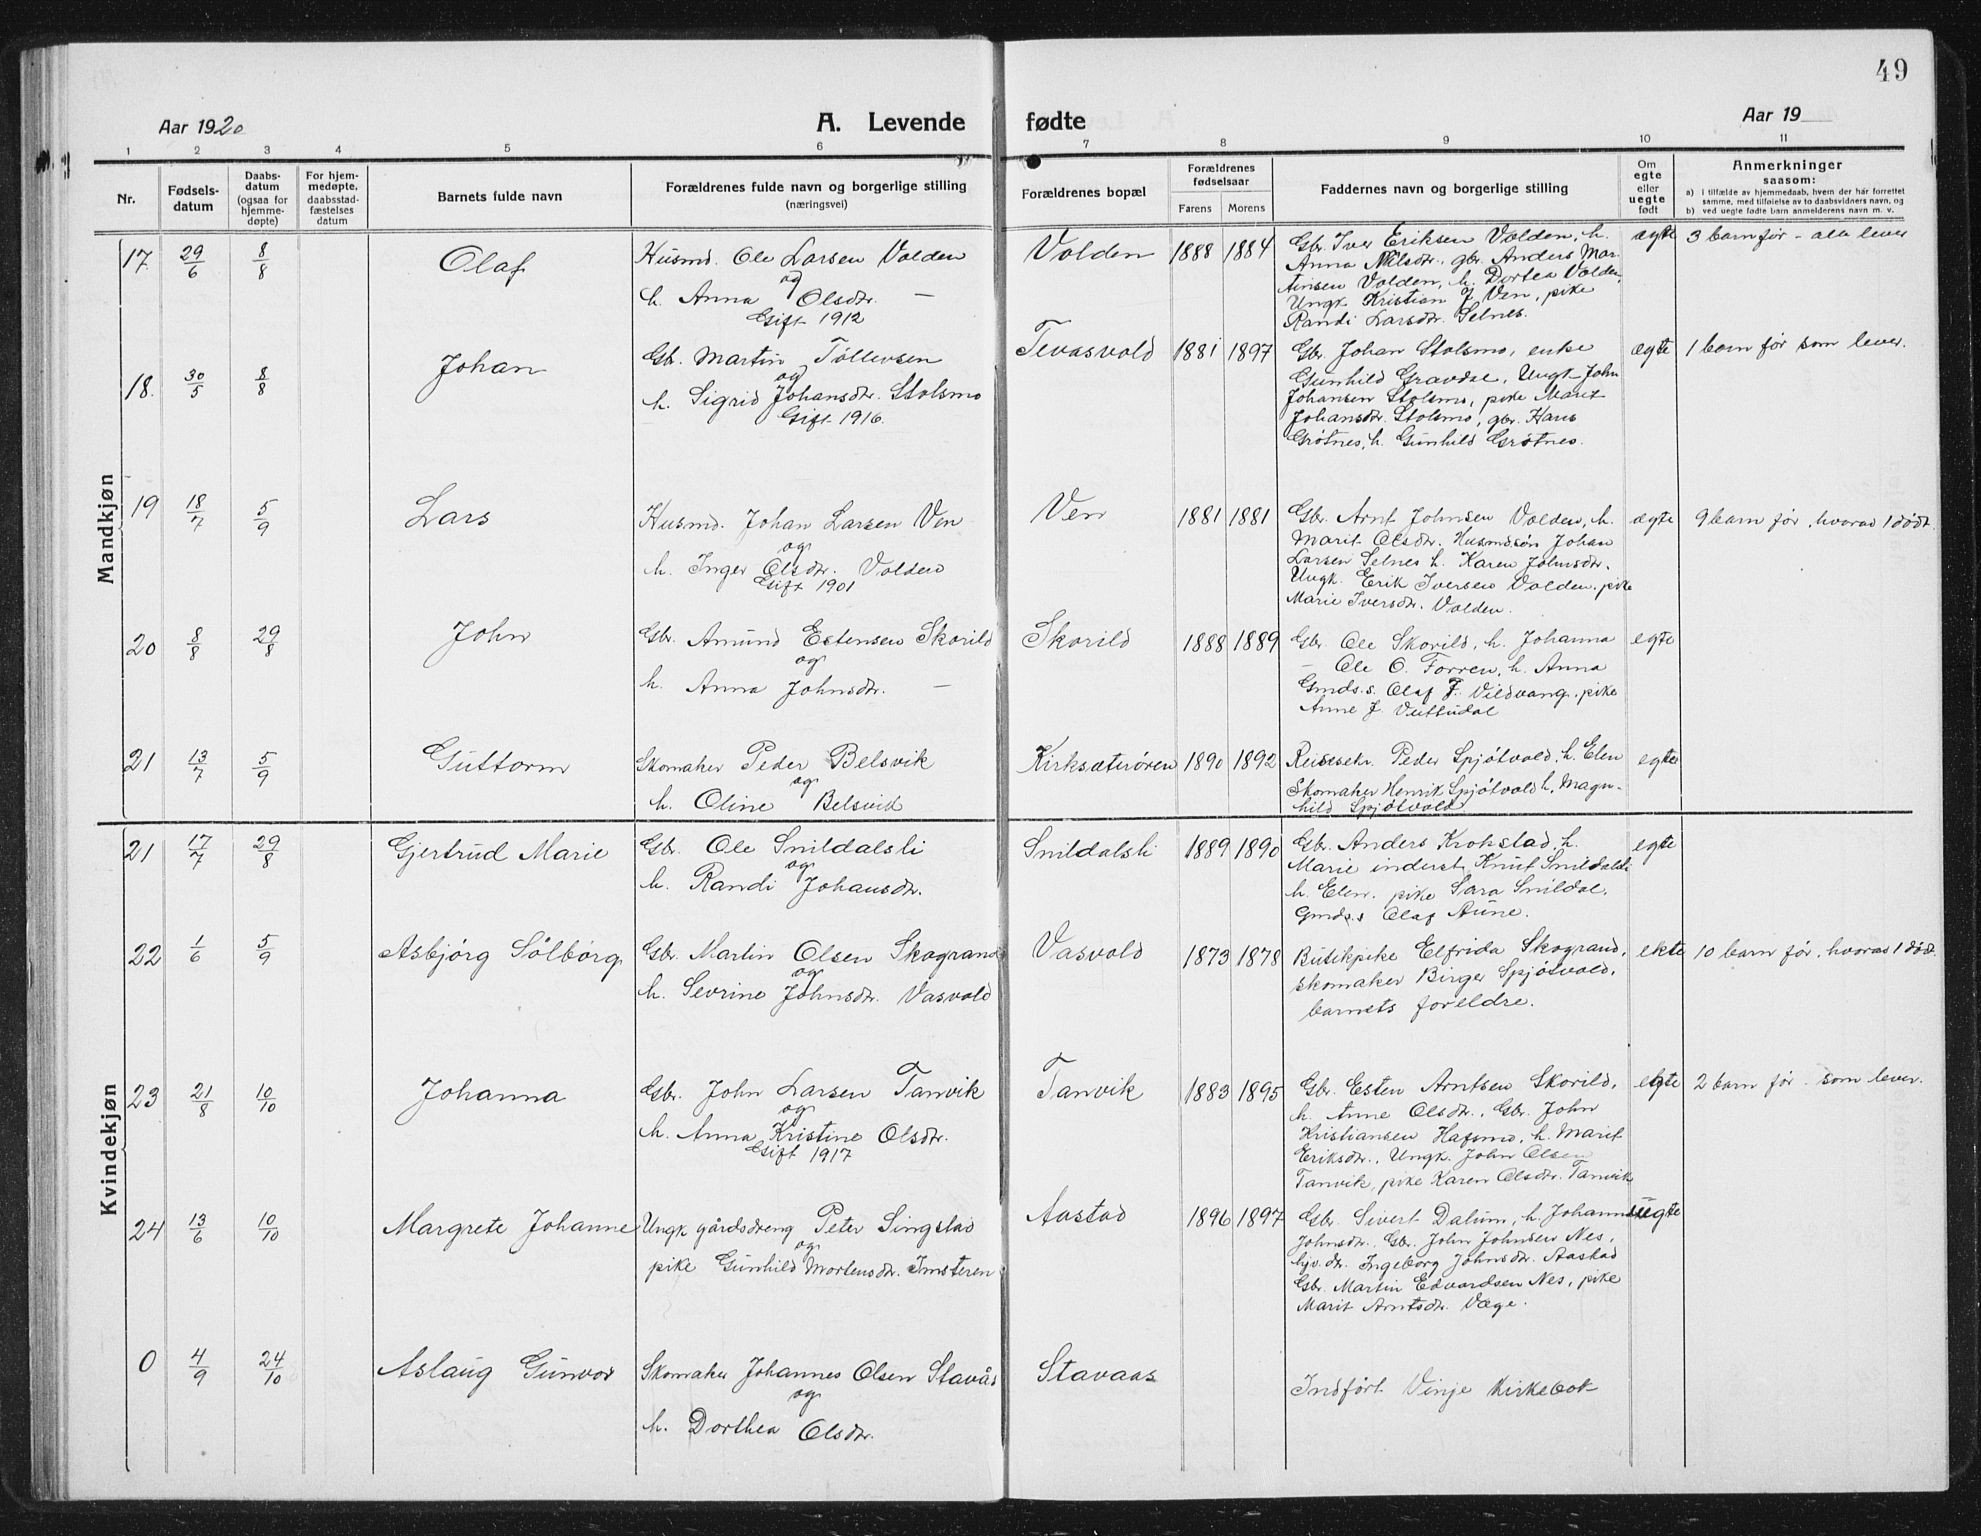 49
Aar 1920
A. Levende fødte
Aar 19
1 2 3 4 5 6 7 8 9 10 11
Nr.
Fødsels-
datum
Daabs-
datum
(ogsaa for
hjemme-
døpte)
For hjem-
medøpte,
daabsstad-
fæstelses
datum
Barnets fulde navn
Forældrenes fulde navn og borgerlige stilling
(næringsvei)
Forældrenes bopæl
Forældrenes
fødselsaar
Farens Morens
Faddernes navn og borgerlige stilling
Om
egte
eller
uegte
født
Anmerkninger
saasom:
a) i tilfælde av hjemmedaab, hvem der har forrettet
samme, med tilføielse av to daabsvidners navn, og
b) ved uegte fødte barn anmelderens navn m. v.
Mandkjøn
17 29/6 8/8 Olaf
Husmd. Ole Larsen Volden
og
h. Anna Olsdtr. —
Gift 1912
Volden 1888 1884
Gbr. Iver Eriksen Volden, h.
Anna Nilsdtr., gbr. Anders Mor-
tinsen Volden, h. Dortea Volden,
Ungk. Kristian J. Ven, pike
Randi Larsdtr. Selnes.
ægte 3 barn før - alle lever
18. 30/5 8/8 Johan
Gbr. Martin Tøllevsen
og
h. Sigrid Johansdtr. Stolsmo
Gift 1916.
Tevasvold 1881 1897
Gbr. Johan Stolsmo, enke
Gunhild Gravdal, Ungk. John
Johansen Stolsmo, pike Marit
Johansdtr. Stolsmo, gbr. Hans
Grøtnes, h. Gunhild Grøtnes.
ægte 1 barn før som lever.
19 18/7 5/9 Lars
Husmd. Johan Larsen Ven
og
h. Inger Olsdtr. Volden
Gift 1901
Ven 1881 1881
Gbr. Arnt Johnsen Volden, h.
Marit Olsdtr. Husmdsøn Johan
Larsen Selnes h. Karen Johnsdtr.
Ungk. Erik Iversen Volden, pike
Marie Iversdtr. Volden.
ægte 9 barn før, hvorav 1 dødt.
20 8/8 29/8 John
Gbr. Amund Estensen Skorild
og
h. Anna Johnsdtr. —
Skorild 1888 1889
Gbr. Ole Skorild, h. Johanna
— Ole O. Forren, h. Anna
Gmds.s. Olaf J. Vildvang, pike
Anne J.
egte
21 13/7 5/9 Guttorm
Skomaker Peder Belsvik
og
h. Oline Belsvik
Kirksæterøren 1890 1892
Reisesekr. Peder Spjøtvold, h. Elen
Skomaker Henrik Spjøtvold h. Magn-
hild Spjøtvold
egte
Kvindekjøn
21 17/7 29/8 Gjertrud Marie
Gbr. Ole Snildalsli
og
h. Randi Johansdtr.
Snildalsli 1889 1890
Gbr. Anders Krokstad, h.
Marie inderst Knut Snildalsli
h. Elen. pike Sara Snildal.
Gmds.s Olaf Aune.
egte
22 1/6 5/9 Asbjørg Sølbørg
Gbr. Martin Olsen Skogrand
og
h. Sevrine Johnsdtr. Vasvold
Vasvold 1873 1878
Butikpike Elfrida Skogrand,
skomaker Birger Spjøtvold,
barnets foreldre.
ekte 10 barn før, hvorav 1 dødt.
23 21/8 10/10 Johanna
Gbr. John Larsen Tanvik
og
h. Anna Kristine Olsdtr.
Gift 1917
Tanvik 1883 1895
Gbr. Esten Arntsen Skorild,
h. Anne Olsdtr., Gbr. John
Kristiansen Hafsmo, h. Marit
Eriksdtr., Ungk. John Olsen
Tanvik, pike Karen Olsdtr. Tanvik
egte 2 barn før - som lever.
24 13/6 10/10 Margrete Johanne
Ungk. gårdsdreng Peter Singstad
og
pike Gunhild Mortensdtr. Imsteren
Aastad 1896 1897
Gbr. Sivert Dalum, h. Johanna
Johnsdtr., Gbr. John Johnsen Nes,
Ingeborg Johnsdtr. Aastad
Gbr. Martin Edvardsen Nes, pike
Marit Arntsdtr. Vage.
uegte
0 4/9 24/10 Aslaug Gunvor
Skomaker Johannes Olsen Stavås
og
h. Dorthea Olsdtr.
Stavaas
Indført Vinje Kirkebok